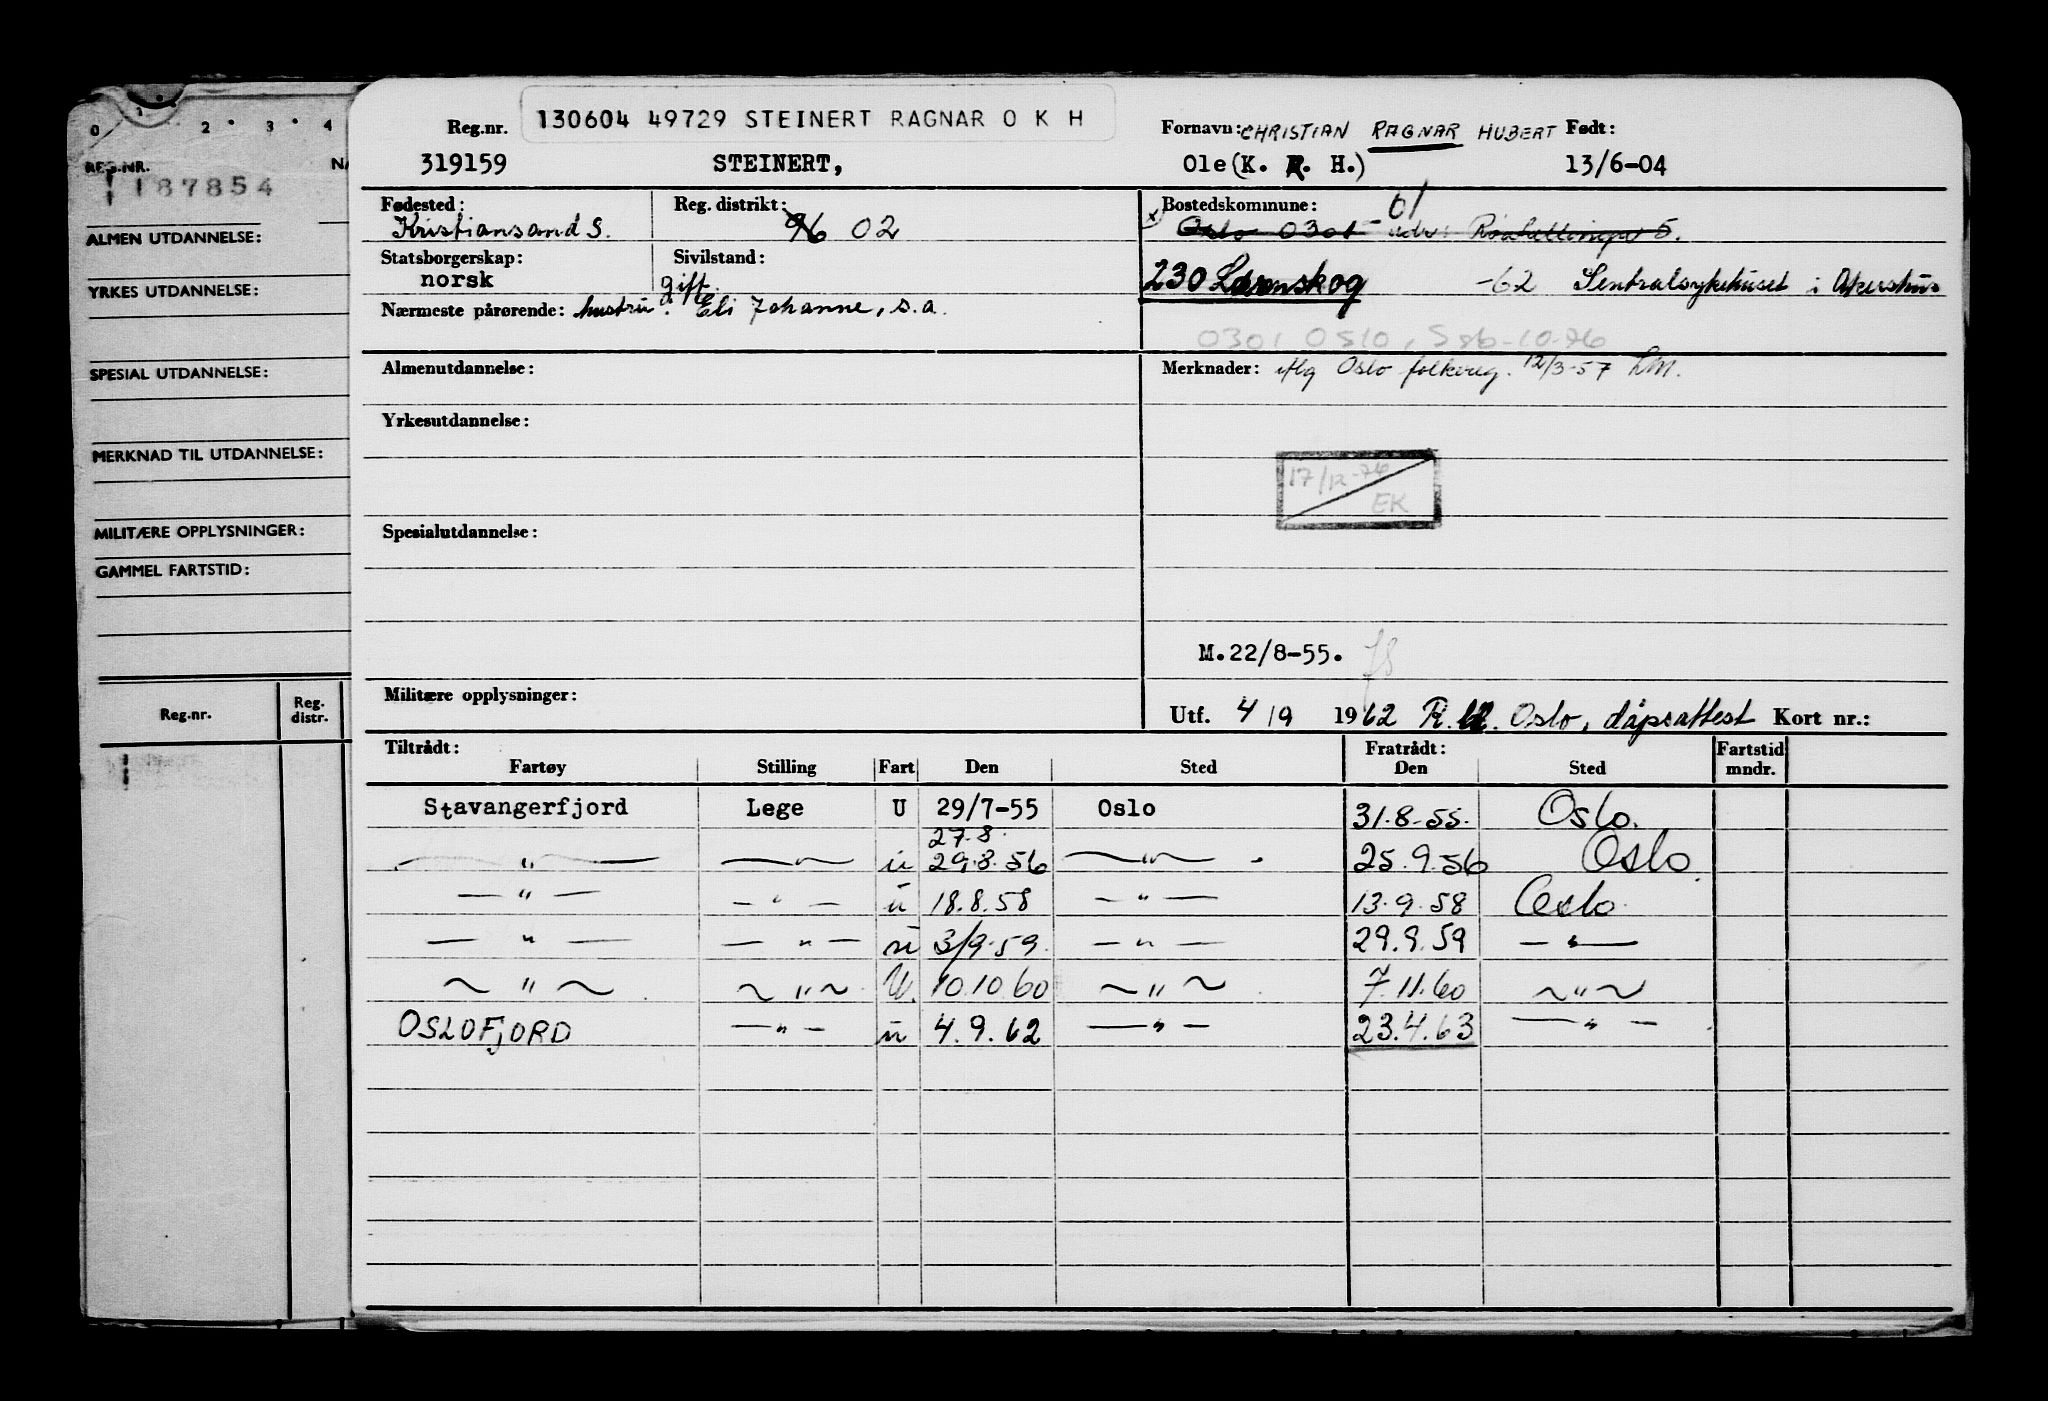 0 1 2 3 4
REG.NR.
187854
ALMEN UTDANNELSE:
YRKES UTDANNELSE:
SPESIAL UTDANNELSE:
MERKNAD TIL UTDANNELSE:
MILITÆRE OPPLYSNINGER:
GAMMEL FARTSTID:
Reg.nr. Reg. distr.
130604 49729 STEINERT RAGNAR O K H
Reg.nr. Fornavn: CHRISTIAN RAGNAR HUBERT Født:
319159 STEINERT, Ole (K. R. H.) 13/6-04
Fødested: Reg. distrikt: Bostedskommune: 01
Kristiansand S. 02 Oslo 0301 5.
Statsborgerskap: Sivilstand:
norsk gift 230 Lørenskog -62 Sentralsykehuset i Akershus
Nærmeste pårørende: hustru: Eli Johanne, s.a.
0301 OSLO, Ssb-10-76
Almenutdannelse: Merknader: iflg Oslo folkereg. 12/3-57
Yrkesutdannelse:
17/12-76
EK
Spesialutdannelse:
M.22/8-55.
Militære opplysninger:
Utf. 4/9 1962 Oslo, dåpsattest Kort nr.:
Tiltrådt: Fratrådt: Fartstid
Fartøy Stilling Fart Den Sted Den Sted mndr.
Stavangerfjord Lege U 29/7-55 Oslo 31.8.55. Oslo.
27.8.
— " — — " — u 29.8.56 — " — 25.9.56 Oslo
— " — — " — u 18.8.58 — " — 13.9.58 Oslo
— " — — " — u 3/9-59. — " — 29.9.59 — " —
~ " ~ ~ " ~ U. 10.10.60 ~ " ~ 7.11.60 ~ " ~
OSLOFJORD — " — u 4.9.62 — " — 23.4.63 — " —